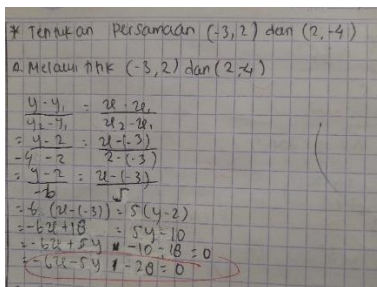 * Tentukan persamaan (-3,2) dan (2,-4)
A. Melalui titik (-3,2) dan (2,-4)
y-y₁ / y₂-y₁ = x-x₁ / x₂-x₁
= y-2 / -4-2 = x-(-3) / 2-(-3)
= y-2 / -6 = x-(-3) / 5
= 6 (x-(-3)) = 5(y-2)
= -6x+18 = 5y-10
= -6x+5y -10-18 = 0
= -6x-5y -28 = 0